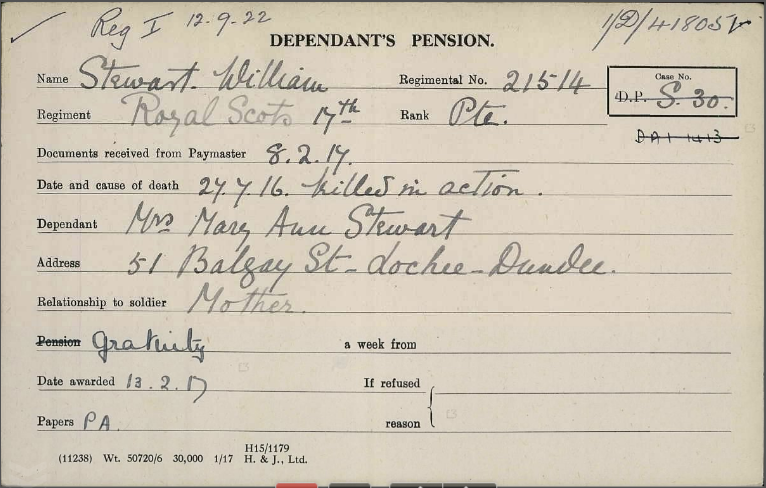 Reg I 12.9.22
1/D/41805
DEPENDANT'S PENSION.
Name Stewart. William Regimental No. 21514
Case No.
D.P. S. 30.
Regiment Royal Scots 17th Rank Pte.
DA1 1413
Documents received from Paymaster 8.2.17.
Date and cause of death 27.7.16. killed in action.
Dependant Mrs Mary Ann Stewart
Address 51 Balgay St - Lochee - Dundee.
Relationship to soldier Mother.
Pension gratuity a week from
Date awarded 13.2.17 If refused
Papers PA. reason
(11238) Wt. 50720/6 30,000 1/17 H15/1179 H. & J., Ltd.